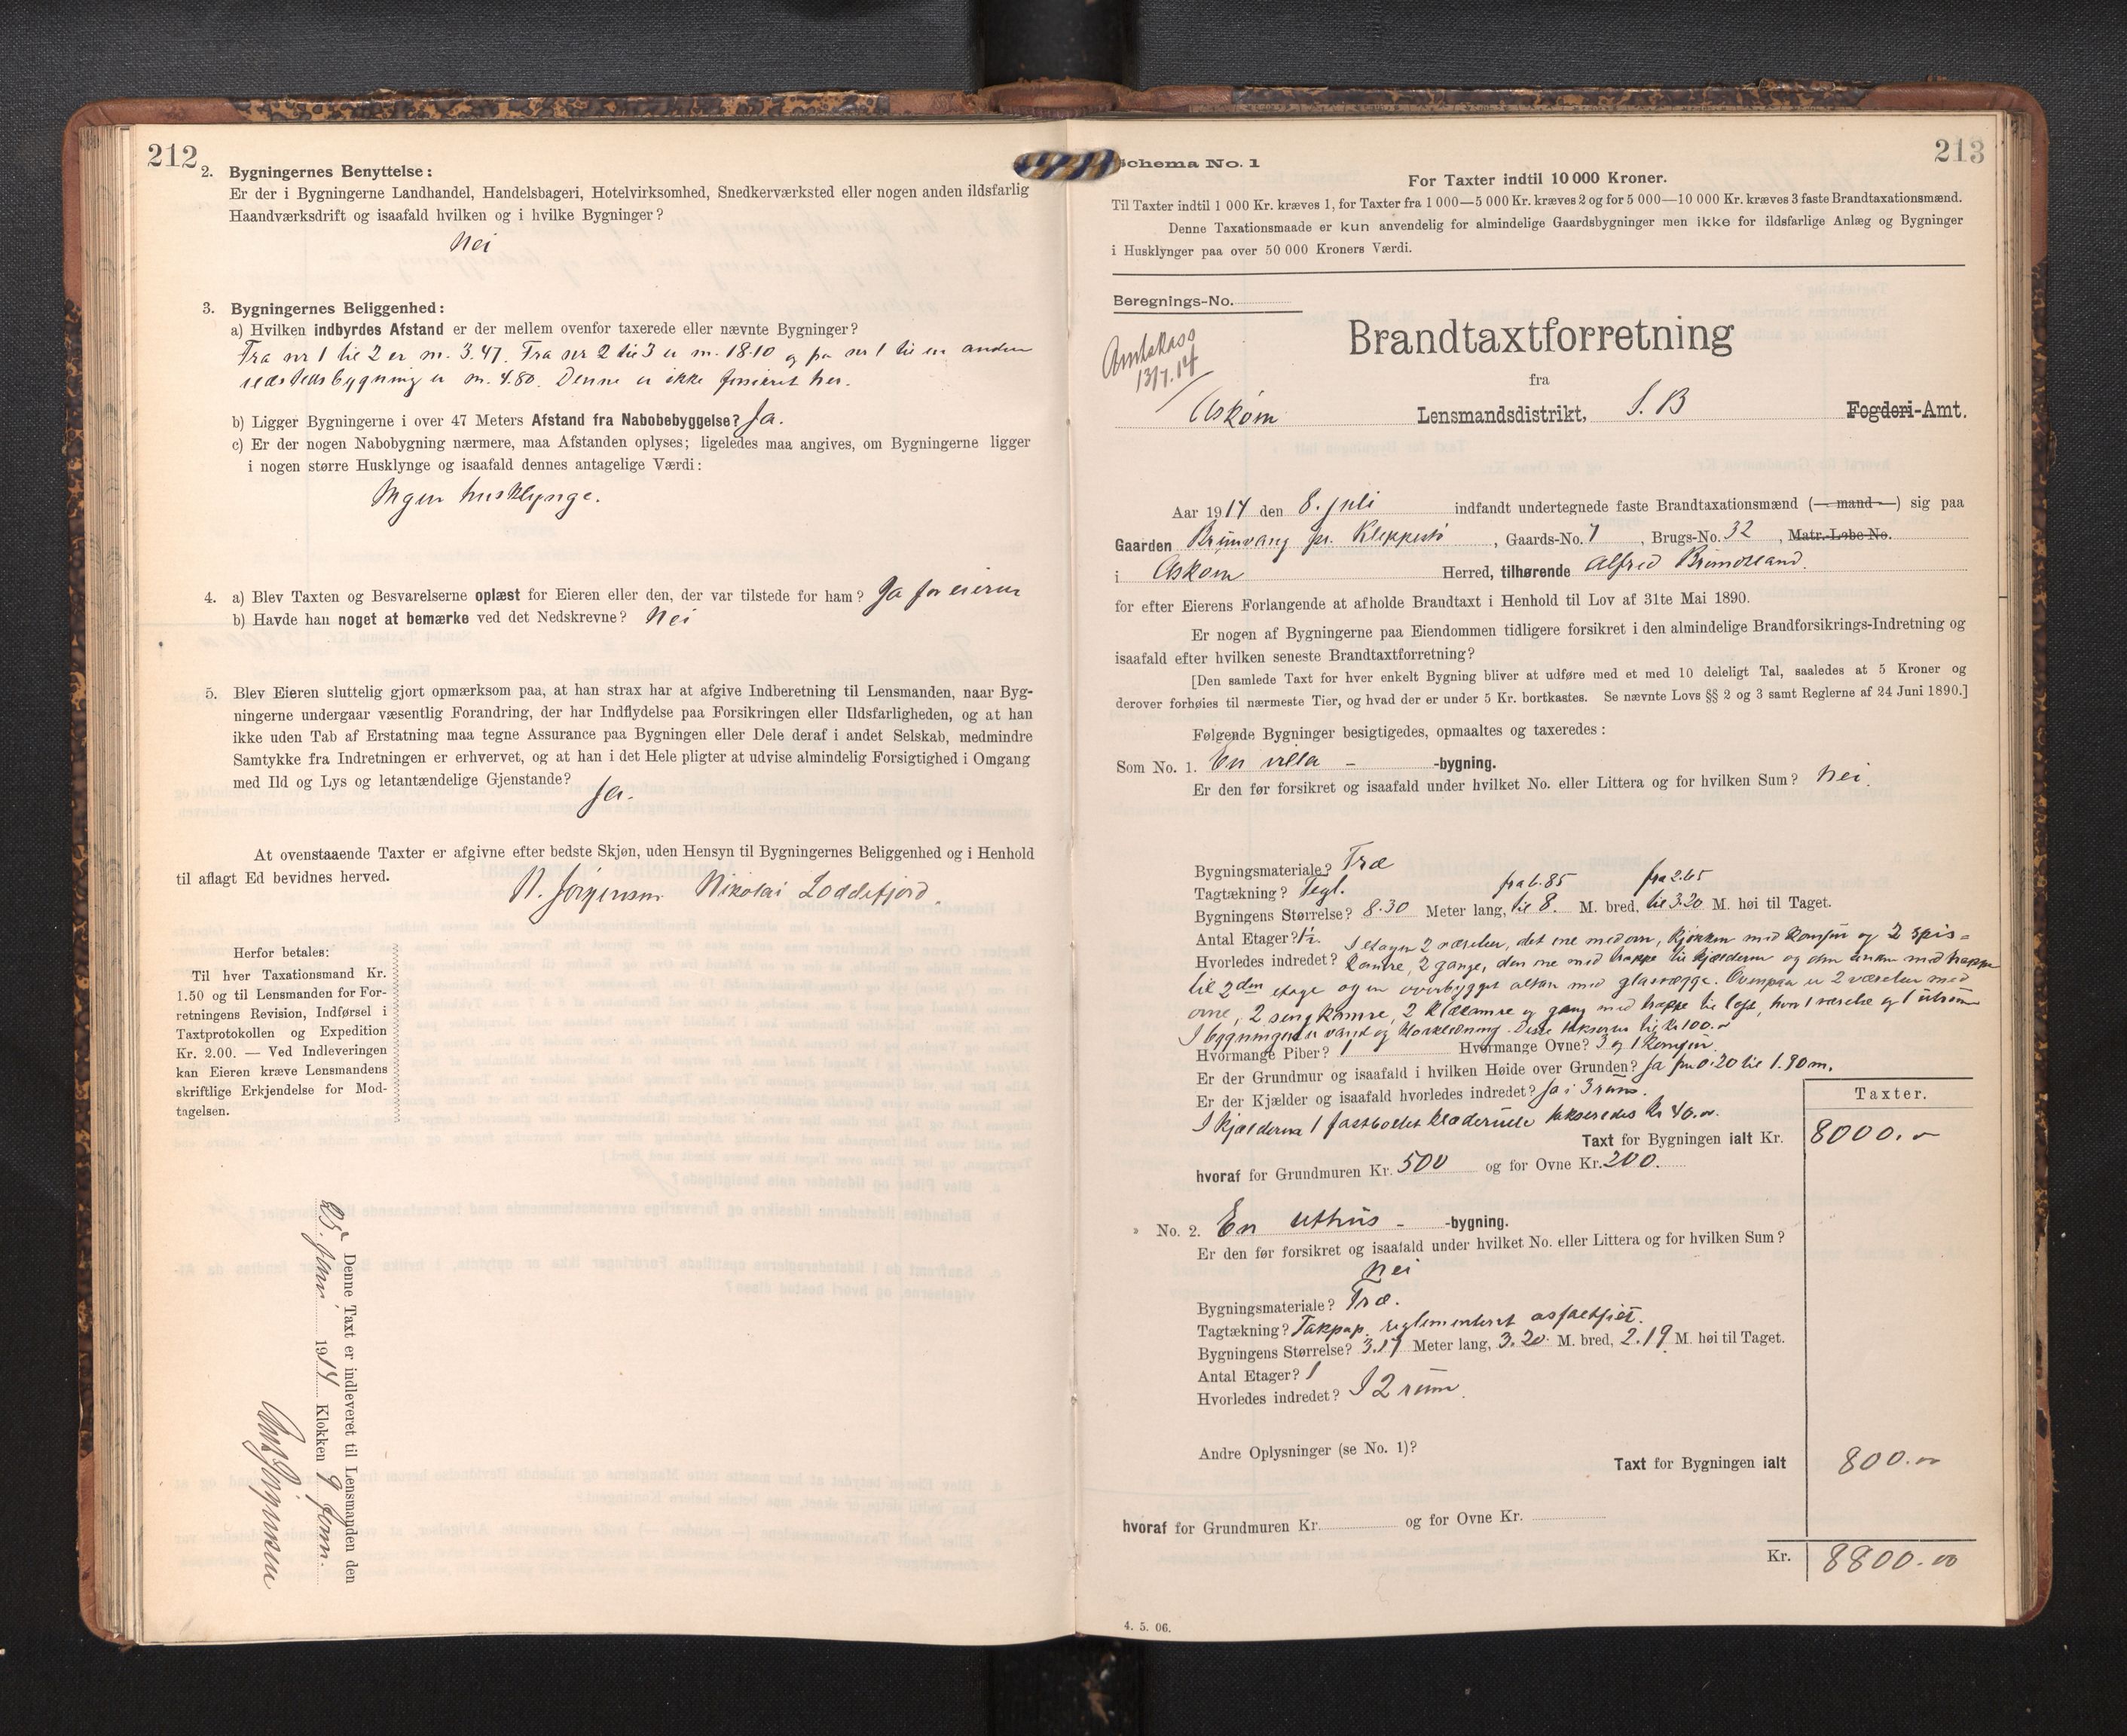 212
2. Bygningernes Benyttelse:
Er der i Bygningerne Landhandel, Handelsbageri, Hotelvirksomhed, Snedkerværksted eller nogen anden ildsfarlig
Haandværksdrift og isaafald hvilken og i hvilke Bygninger?
Nei
3. Bygningernes Beliggenhed:
a) Hvilken indbyrdes Afstand er der mellem ovenfor taxerede eller nævnte Bygninger?
Fra nr 1 til 2 er m. 3.47. Fra nr 2 til 3 er m. 18.10 og fra nr 1 til en anden
er m. 4.80. Denne er ikke forsikret her.
b) Ligger Bygningerne i over 47 Meters Afstand fra Nabobebyggelse? Ja.
c) Er der nogen Nabobygning nærmere, maa Afstanden oplyses; ligeledes maa angives, om Bygningerne ligger
i nogen større Husklynge og isaafald dennes antagelige Værdi:
Ingen husklynge.
4. a) Blev Taxten og Besvarelserne oplæst for Eieren eller den, der var tilstede for ham? Ja for eieren
b) Havde han noget at bemærke ved det Nedskrevne? Nei
5. Blev Eieren sluttelig gjort opmærksom paa, at han strax har at afgive Indberetning til Lensmanden, naar Byg-
ningerne undergaar væsentlig Forandring, der har Indflydelse paa Forsikringen eller Ildsfarligheden, og at han
ikke uden Tab af Erstatning maa tegne Assurance paa Bygningen eller Dele deraf i andet Selskab, medmindre
Samtykke fra Indretningen er erhvervet, og at han i det Hele pligter at udvise almindelig Forsigtighed i Omgang
med Ild og Lys og letantændelige Gjenstande?
Ja.
At ovenstaaende Taxter er afgivne efter bedste Skjøn, uden Hensyn til Bygningernes Beliggenhed og i Henhold
til aflagt Ed bevidnes herved.
N. Jörgensen Nikolai Loddefjord.
Herfor betales:
Til hver Taxationsmand Kr.
1.50 og til Lensmanden for For-
retningens Revision, Indførsel i
Taxtprotokollen og Expedition
Kr. 2.00. — Ved Indleveringen
kan Eieren kræve Lensmandens
skriftlige Erkjendelse for Mod-
tagelsen.
Denne Taxt er indleveret til Lensmanden den
25. 1914 Klokken 9 Form.
Schema No. 1
213
For Taxter indtil 10 000 Kroner.
Til Taxter indtil 1 000 Kr. kræves 1, for Taxter fra 1 000—5 000 Kr. kræves 2 og for 5 000—10 000 Kr. kræves 3 faste Brandtaxationsmænd.
Denne Taxationsmaade er kun anvendelig for almindelige Gaardsbygninger men ikke for ildsfarlige Anlæg og Bygninger
i Husklynger paa over 50 000 Kroners Værdi.
Beregnings-No.
13/7.14
Brandtaxtforretning
fra
Askøen Lensmandsdistrikt, S. B Fogderi-Amt.
Aar 1914 den 8. juli indfandt undertegnede faste Brandtaxationsmænd (— mand —) sig paa
Gaarden pr. Kleppestö, Gaards-No. 7, Brugs-No. 32, Matr.-Løbe-No.
i Askøen Herred, tilhørende Alfred
for efter Eierens Forlangende at afholde Brandtaxt i Henhold til Lov af 31te Mai 1890.
Er nogen af Bygningerne paa Eiendommen tidligere forsikret i den almindelige Brandforsikrings-Indretning og
isaafald efter hvilken seneste Brandtaxtforretning?
[Den samlede Taxt for hver enkelt Bygning bliver at udføre med et med 10 deleligt Tal, saaledes at 5 Kroner og
derover forhøies til nærmeste Tier, og hvad der er under 5 Kr. bortkastes. Se nævnte Lovs §§ 2 og 3 samt Reglerne af 24 Juni 1890.]
Følgende Bygninger besigtigedes, opmaaltes og taxeredes:
Som No. 1. En villa - -bygning.
Er den før forsikret og isaafald under hvilket No. eller Littera og for hvilken Sum? Nei.
Bygningsmateriale? Træ
Tagtækning? Tegl. fra 6.85 fra 2.65
Bygningens Størrelse? 8.30 Meter lang, til 8. M. bred, til 3.20 M. høi til Taget.
Antal Etager? 1½. I etagen 2 værelser, det ene med ovn, kjøkken med komfur og 2 spis-
Hvorledes indredet? kamre, 2 gange, den ene med trappe til kjælderen og den anden med trappe
til 2den etage og en overbygget altan med glasvægge. Ovenpaa er 2 værelser med
ovne, 2 sengkamre, 2 klækamre og gang med trappe til loft, hvor 1 værelse og 1
I bygningen er vand og Disse takseres til kr 100.00
Hvormange Piber? 1 Hvormange Ovne? 3 og 1 komfur.
Er der Grundmur og isaafald i hvilken Høide over Grunden? Ja fra 0.20 til 1.80 m.
Er der Kjælder og isaafald hvorledes indredet? Ja i 3 rum.
I kjælderen 1 takseredes kr 40.00.
Taxter.
Taxt for Bygningen ialt Kr. 8000.00
hvoraf for Grundmuren Kr. 500 og for Ovne Kr. 200.
» No. 2. En uthus - -bygning.
Er den før forsikret og isaafald under hvilket No. eller Littera og for hvilken Sum?
Nei
Bygningsmateriale? Træ.
Tagtækning? Takpap, reglementeret asfaltfilt.
Bygningens Størrelse? 3.17 Meter lang, 3.20 M. bred, 2.19 M. høi til Taget.
Antal Etager? 1
Hvorledes indredet? I 2 rum.
Andre Oplysninger (se No. 1)?
Taxt for Bygningen ialt 800.00
hvoraf for Grundmuren Kr. og for Ovne Kr.
Kr. 8800.00
4. 5. 06.